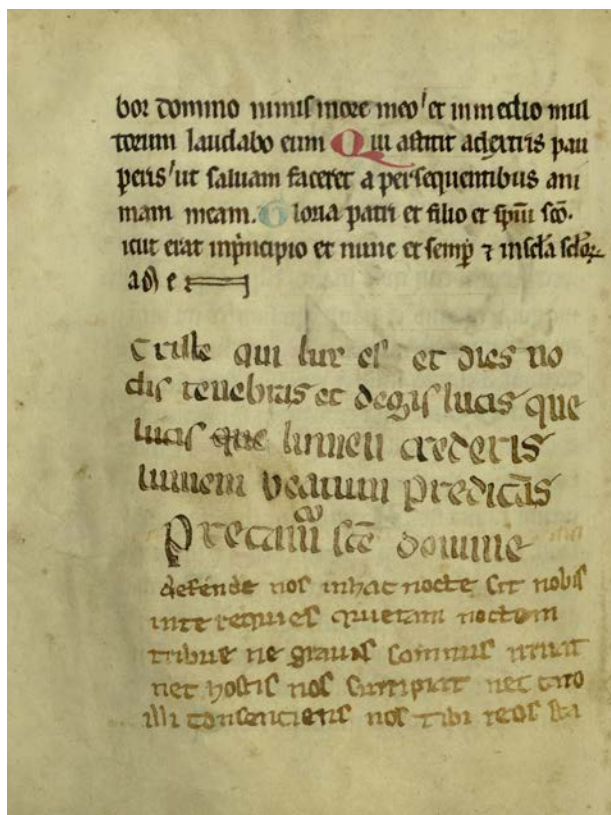 bor domino nimis more meo et in medio mul
torum laudabo eum Qui astitit a dextris pau
peris ut saluam faceret a persequentibus ani
mam meam. Gloria patri et filio et spm sco.
icut erat in pncipio et nunc et semp ⁊ in scla sclor
am e
criste qui lux es et dies no
ctis tenebras et degis lucis que
lucis que lumen crederis
lumem beatum predicas
Precamur sce domine
defende nos in hac nocte sit nobis
in te requies quietam noctem
tribue ne grauis somnus irruat
nec hostis nos surripiat nec caro
illi consencieris nos tibi reos sta